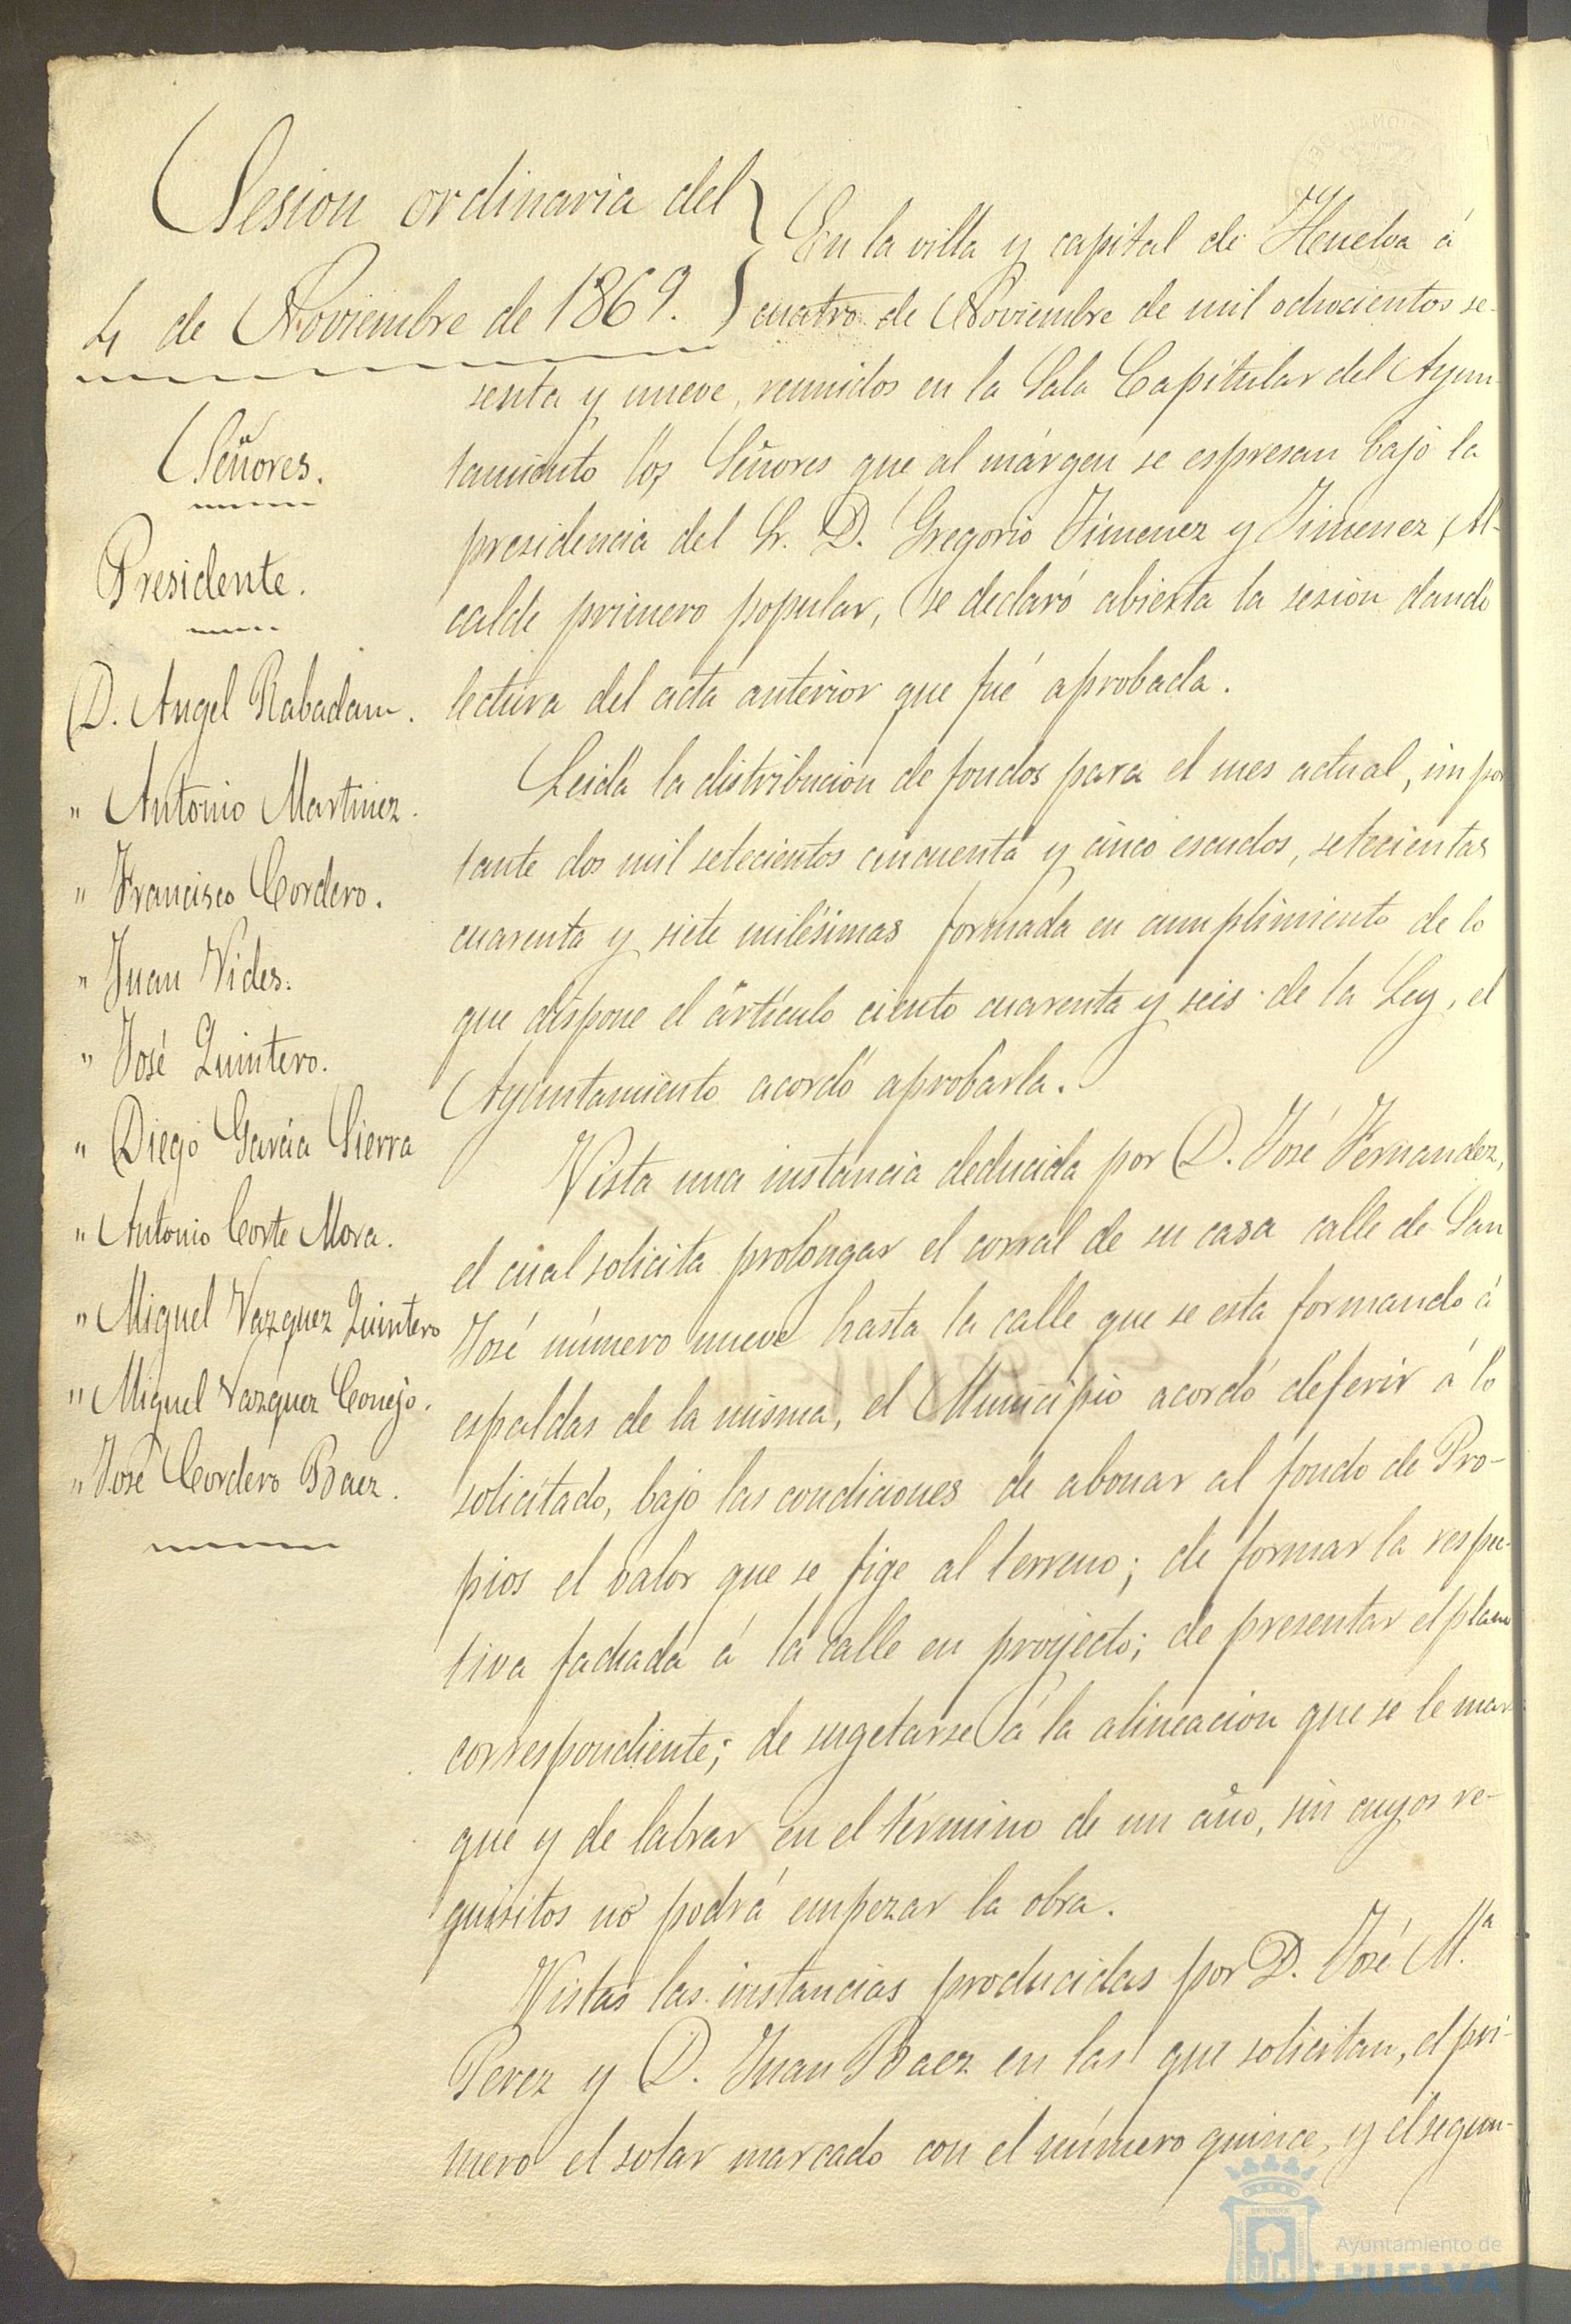 Sesion ordinaria del
4 de Noviembre de 1869.
Señores.
Presidente.
D. Angel Rabadan.
" Antonio Martinez.
" Francisco Cordero.
" Juan Vides.
" José Quintero.
" Diego Garcia Sierra
" Antonio Corte Mora.
" Miguel Vazquez Quintero
" Miguel Vazquez Conejo.
" José Cordero Baez.
En la villa y capital de Huelva á
cuatro de Noviembre de mil ochocientos se-
senta y nueve, reunidos en la Sala Capitular del Ayun-
tamiento los Señores que al márgen se espresan bajo la
presidencia del Sr. D. Gregorio Jimenez y Jimenez, Al-
calde primero popular, se declaró abierta la sesion dando
lectura del acta anterior que fué aprobada.
Leida la distribucion de fondos para el mes actual, impor
tante dos mil setecientos cincuenta y cinco escudos, setecientas
cuarenta y siete milésimas formada en cumplimiento de lo
que dispone el artículo ciento cuarenta y seis de la Ley, el
Ayuntamiento acordó aprobarla.
Vista una instancia deducida por D. José Fernandez,
el cual solicita prolongar el corral de su casa calle de San
José número nueve hasta la calle que se esta formando á
espaldas de la misma, el Municipio acordó deferir á lo
solicitado, bajo las condiciones de abonar al fondo de Pro-
pios el valor que se fige al terreno; de formar la respec-
tiva fachada á la calle en proyecto; de presentar el plano
correspondiente; de sugetarse á la alineacion que se le mar
que y de labrar en el término de un año, sin cuyos re-
quisitos no podrá empezar la obra.
Vistas las instancias producidas por D. José M.ª
Perez y D. Juan Baez en las que solicitan, el pri-
mero el solar marcado con el número quince, y el segun-
Ayuntamiento de
HUELVA